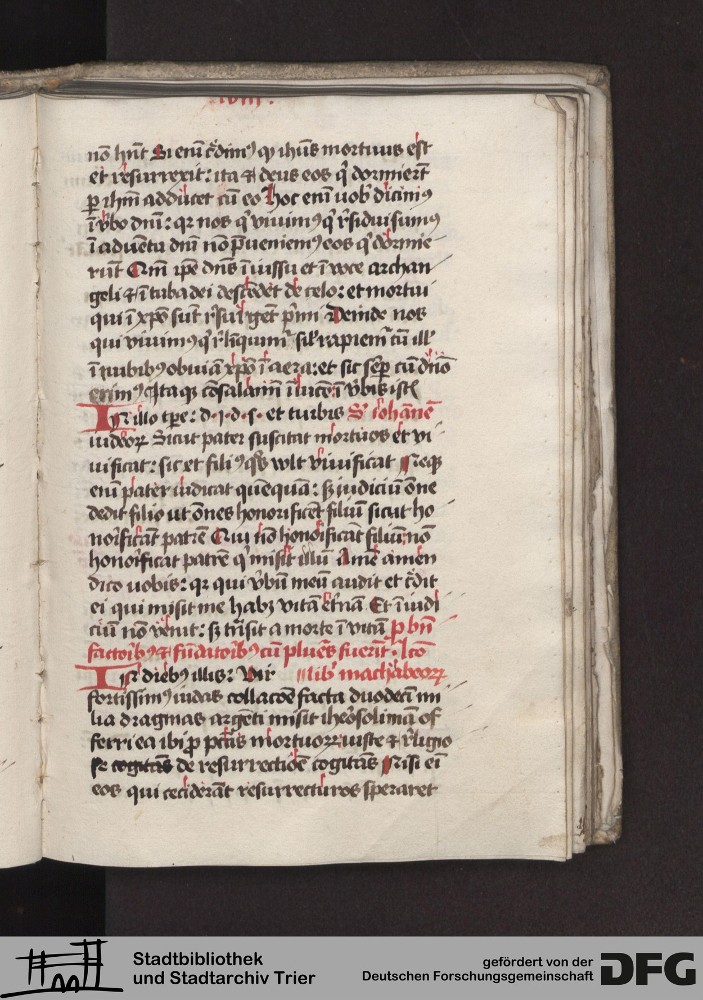 xviii.
nō hn̄t Si enī c̄dimꝰ qꝫ ihūs mortuus est
et resurrexit: ita & deus eos qͥ dormierūt
ꝑ ihm̄ adducet cū eo hoc enī uob̄ dicimꝰ
ī v̄bo dnī: qꝛ nos qͥ viuimꝰ qͥ r̄siduisumꝰ
ī aduētū dnī nō p̄ueniemꝰ eos qͥ dormie-
rūt Qm̄ ip̄e dn̄s ī iussu et ī voce archan
geli & ī tuba dei descēdet de celo: et mortui
qui ī xp̄o sūt r̄surgēt pͥmi Deinde nos
qui viuimꝰ qͥ r̄linquimͬ silͥ rapiemͬ cū ill̄
ī nubibꝰ obuiā xp̄o ī aera: et sic sēꝑ cū dn̄o
erimꝰ Itaqꝫ cōsalamī ī luicē ī v̄bis ist̄
IN illo tp̄e: d. i. d. s. et turbis S. Iohānē
iudeoꝝ Sicut pater suscitat mortuos et vi-
uificat: sic et filiꝰ qͦs wlt viuificat Neqꝫ
enī pater iudicat quēquā: sꝫ iudiciū ōne
dedit filio ut ōnes honorificēt filiū sicut ho
norificāt patrē Qui nō honorificat filiū: nō
honorificat patrē qͥ misit illū Amē amen
dico uobis: qꝛ qui v̄bū meū audit et c̄dit
ei qui misit me habꝫ vitā et̄nā Et ī iudi
ciū nō venit: sꝫ trāsit a morte ī vitā ꝑ bn̄
factoribꝰ & fūdatoribꝰ cū plures fuerit. lc̄o
IN diebꝰ illis: Vir libͥ machabeoꝝ
fortissimꝰ iudas collacōe facta duodecī mi
lia dragmas argēti misit iherosolimā of
ferri ea ibi ꝓ pctīs mortuoꝝ iuste & r̄ligio
se cogitās de resurrectiōe cogitās Nisi eī
eos qui ceciderāt resurrecturos speraret
Stadtbibliothek
und Stadtarchiv Trier
gefördert von der
Deutschen Forschungsgemeinschaft
DFG